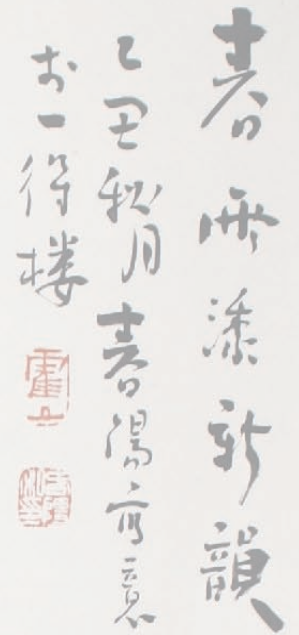 春雨添新韻
乙丑秋月春陽寫意
於一得樓